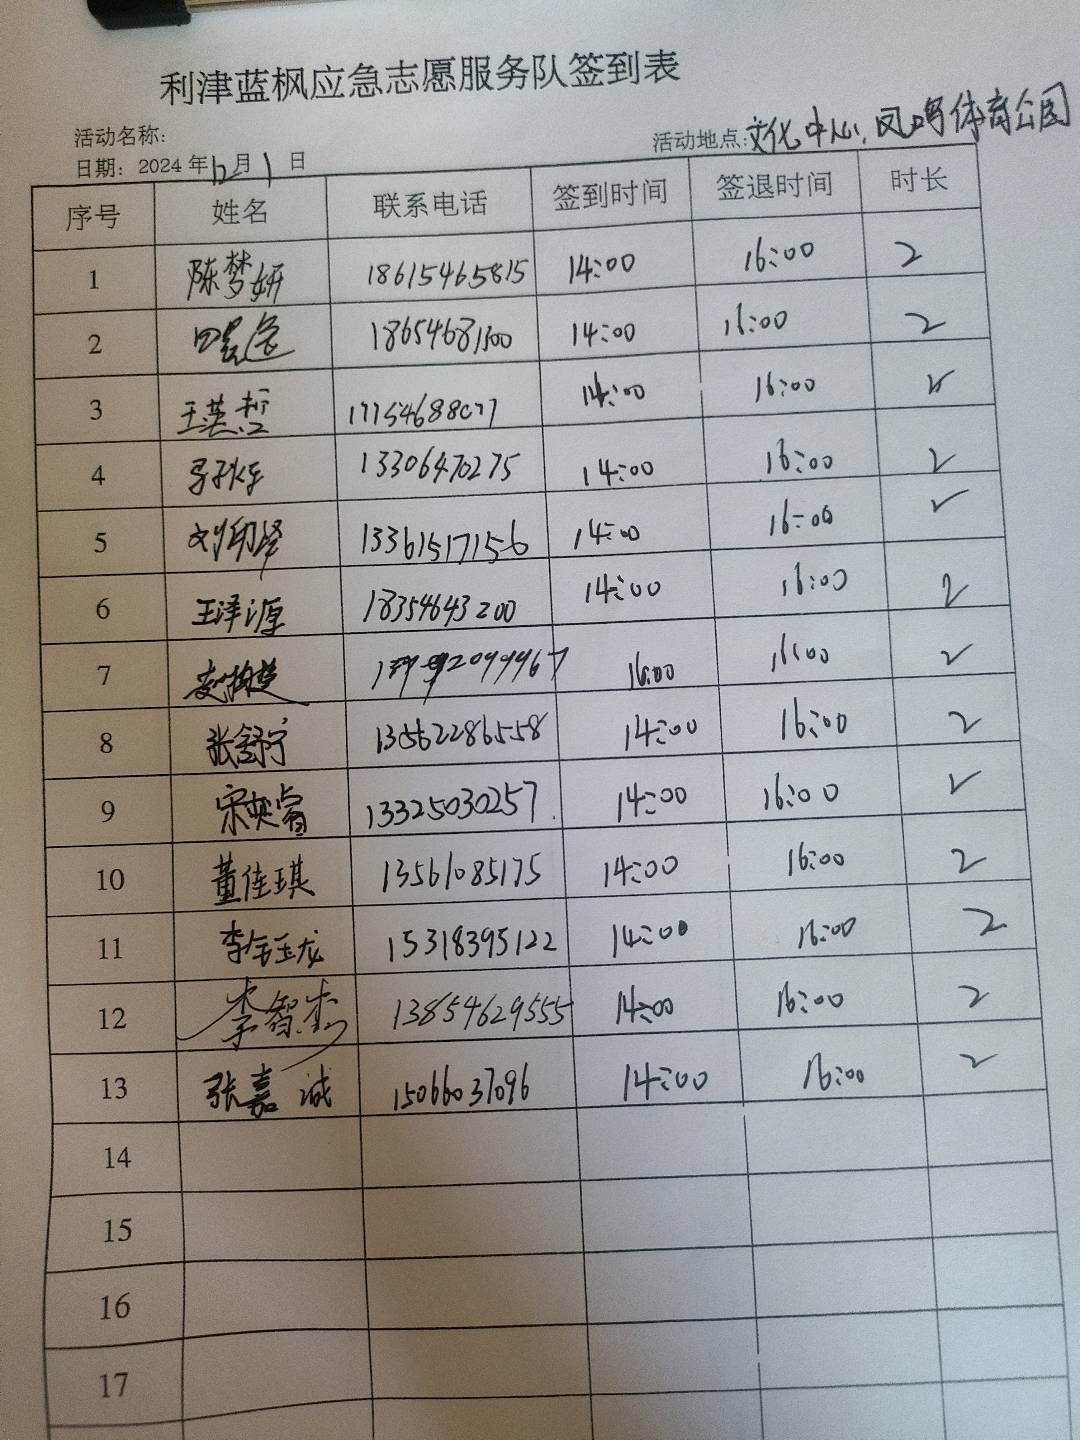 利津蓝枫应急志愿服务队签到表
活动名称:
活动地点:文化中心,凤鸣体育公园
日期: 2024年12月1日
序号 姓名 联系电话 签到时间 签退时间 时长
1 陈梦妍 18615465815 14:00 16:00 2
2 18654681500 14:00 16:00 2
3 王英哲 17154688077 14:00 16:00 2
4 13306470275 14:00 16:00 2
5 刘印泽 13361517156 14:00 16:00 2
6 王泽源 18354643200 14:00 16:00 2
7 16:00 16:00 2
8 张舒宁 13562286558 14:00 16:00 2
9 13325030257 14:00 16:00 2
10 董佳琪 13561085175 14:00 16:00 2
11 李钰龙 15318395122 14:00 16:00 2
12 李智杰 13854629555 14:00 16:00 2
13 张嘉诚 15066037096 14:00 16:00 2
14
15
16
17